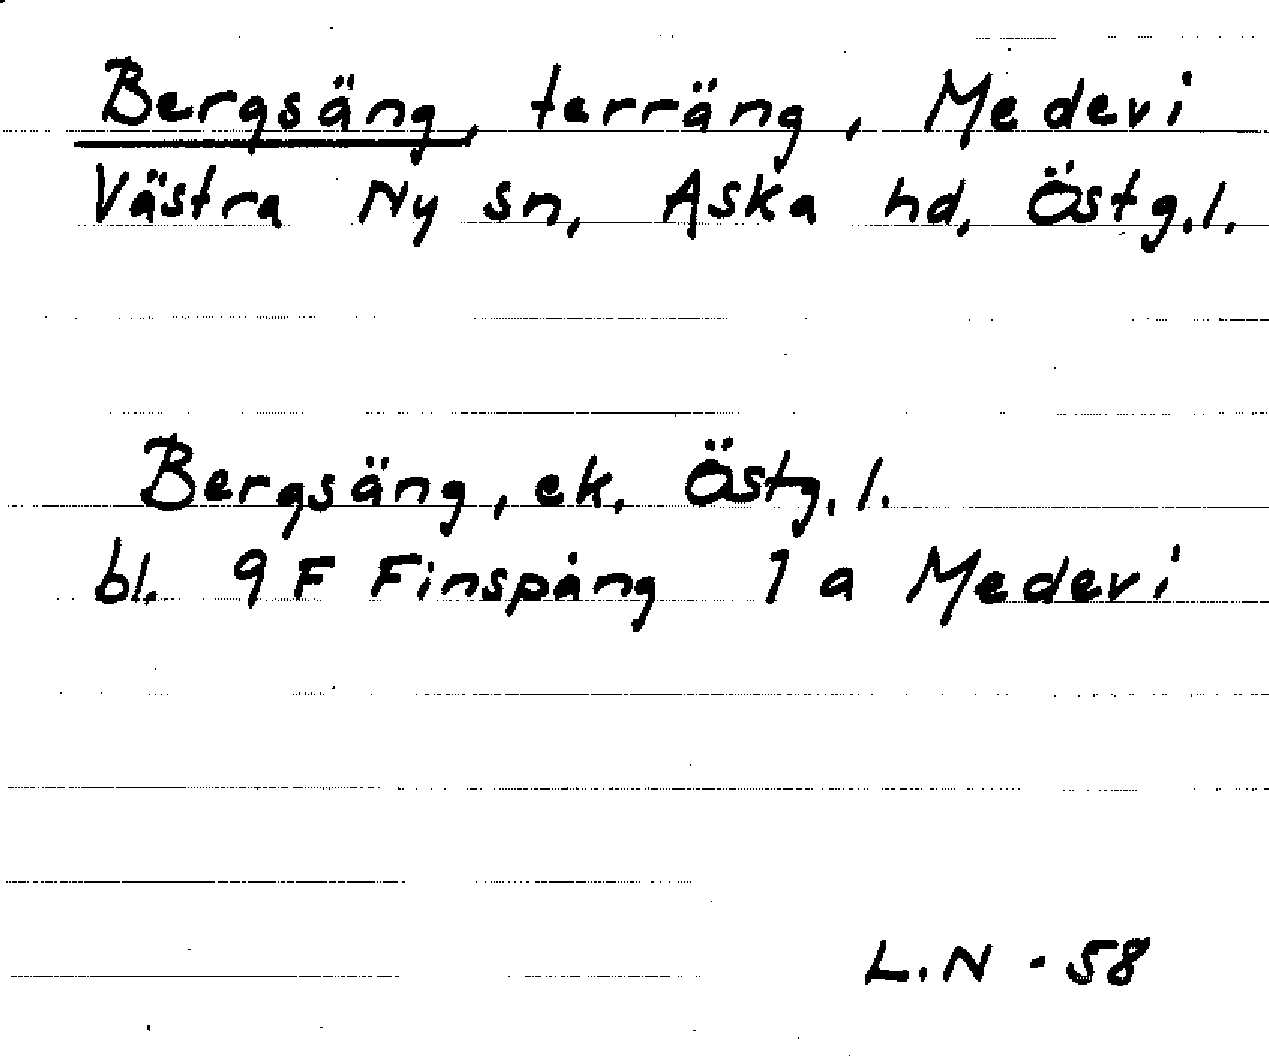 Bergsäng, terräng, Medevi
Västra Ny sn, Aska hd, Östg.l.
Bergsäng, ek. Östg.l.
bl. 9F Finspång 1a Medevi
L.N - 58